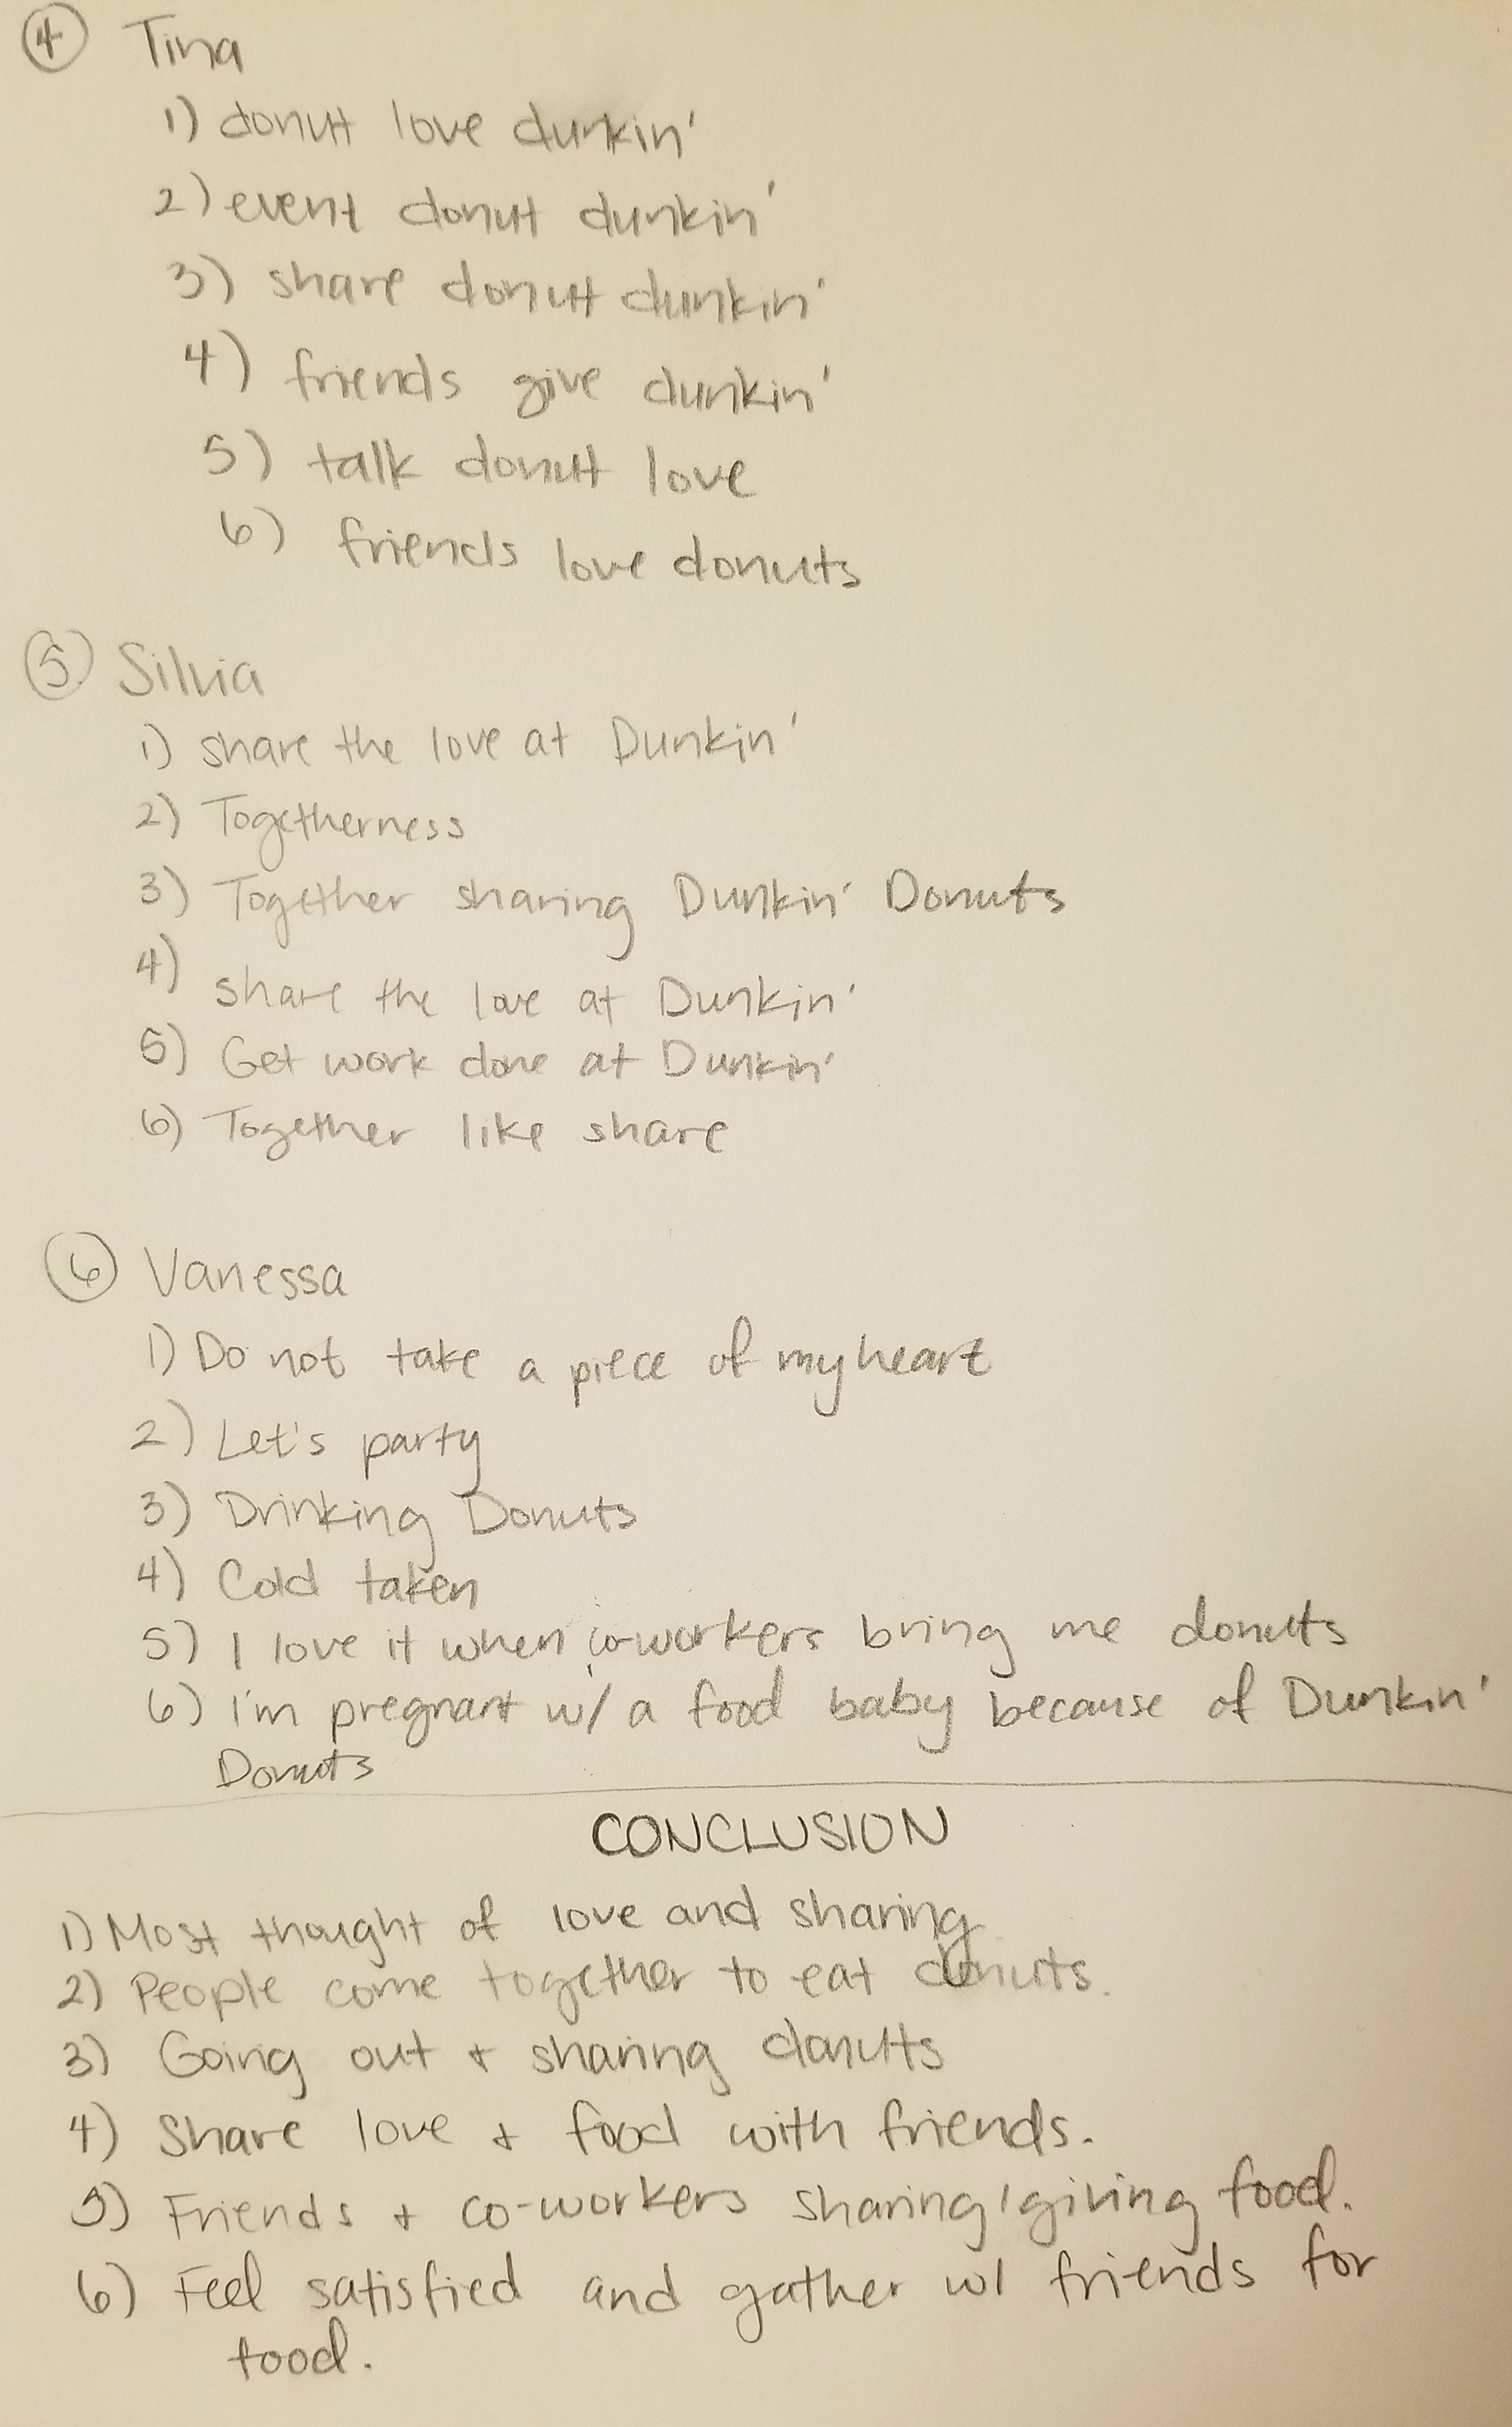 ④ Tina
1) donut love dunkin'
2) event donut dunkin'
3) share donut dunkin'
4) friends give dunkin'
5) talk donut love
6) friends love donuts
⑤ Silvia
1) share the love at Dunkin'
2) Togetherness
3) Together sharing Dunkin' Donuts
4) share the love at Dunkin'
5) Get work done at Dunkin'
6) Together like share
⑥ Vanessa
1) Do not take a piece of my heart
2) Let's party
3) Drinking Donuts
4) Cold taken
5) I love it when co-workers bring me donuts
6) I'm pregnant w/ a food baby because of Dunkin'
Donuts
CONCLUSION
1) Most thought of love and sharing
2) People come together to eat donuts.
3) Going out + sharing donuts
4) Share love + food with friends.
5) Friends + co-workers sharing/giving food.
6) Feel satisfied and gather w/ friends for
food.